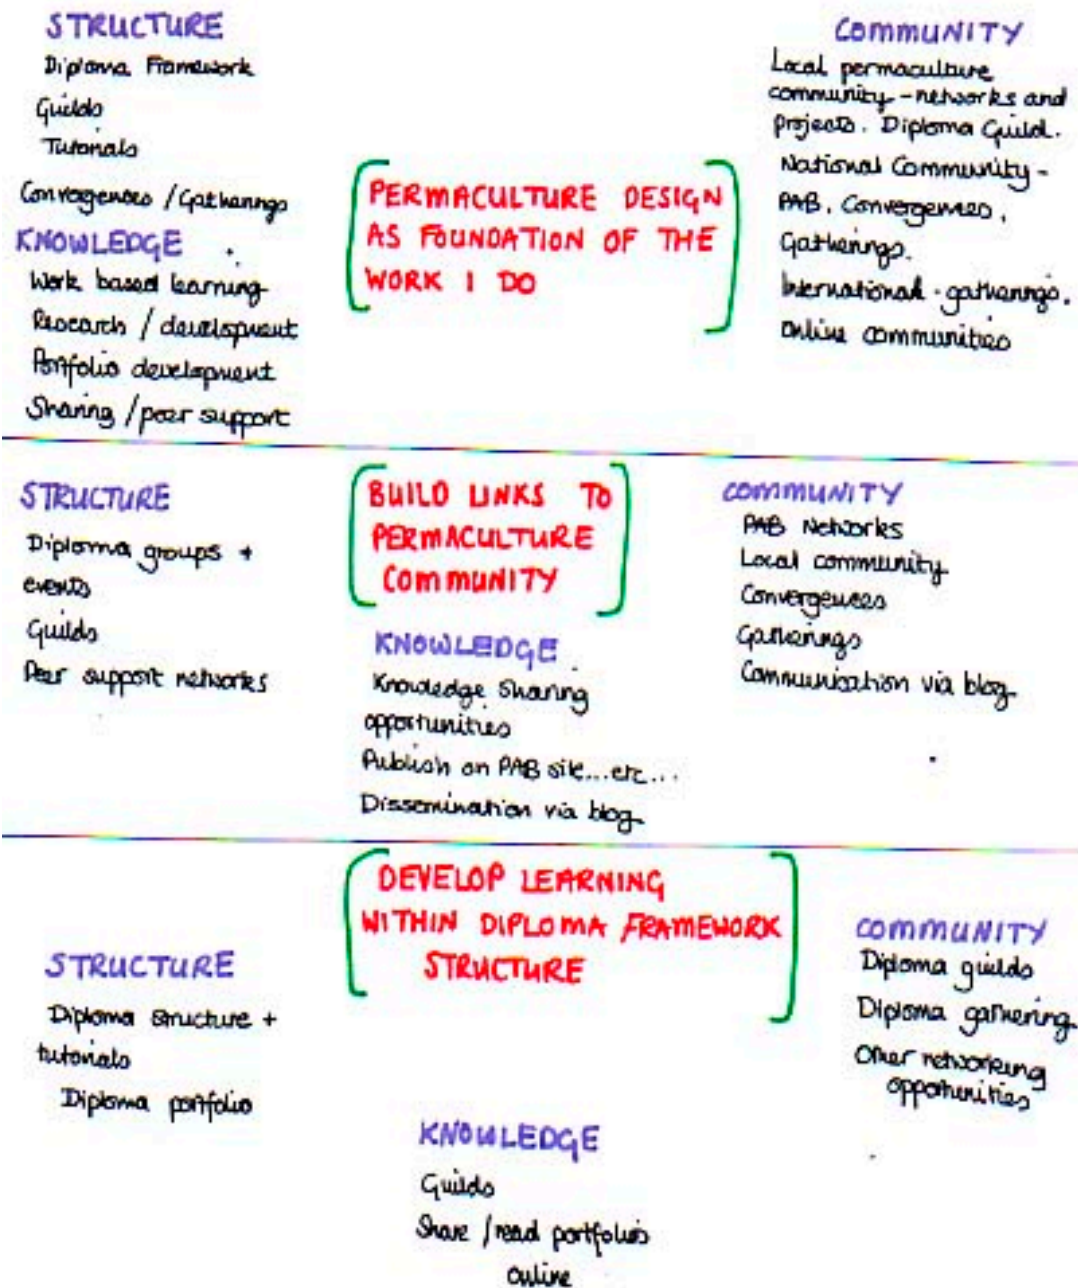 STRUCTURE
Diploma Framework
Guilds
Tutorials
Convergences / Gatherings
KNOWLEDGE
Work based learning
Research / development
Portfolio development
Sharing / peer support
PERMACULTURE DESIGN
AS FOUNDATION OF THE
WORK I DO
COMMUNITY
Local permaculture
community - networks and
projects. Diploma Guild.
National Community -
PAB, Convergences,
Gatherings.
International - gatherings.
Online communities
STRUCTURE
Diploma groups +
events
Guilds
Peer support networks
BUILD LINKS TO
PERMACULTURE
COMMUNITY
KNOWLEDGE
Knowledge Sharing
opportunities
Publish on PAB site...etc...
Dissemination via blog
COMMUNITY
PAB Networks
Local community
Convergences
Gatherings
Communication via blog
DEVELOP LEARNING
WITHIN DIPLOMA FRAMEWORK
STRUCTURE
STRUCTURE
Diploma structure +
tutorials
Diploma portfolio
KNOWLEDGE
Guilds
Share / read portfolios
online
COMMUNITY
Diploma guilds
Diploma gathering
Other networking
opportunities